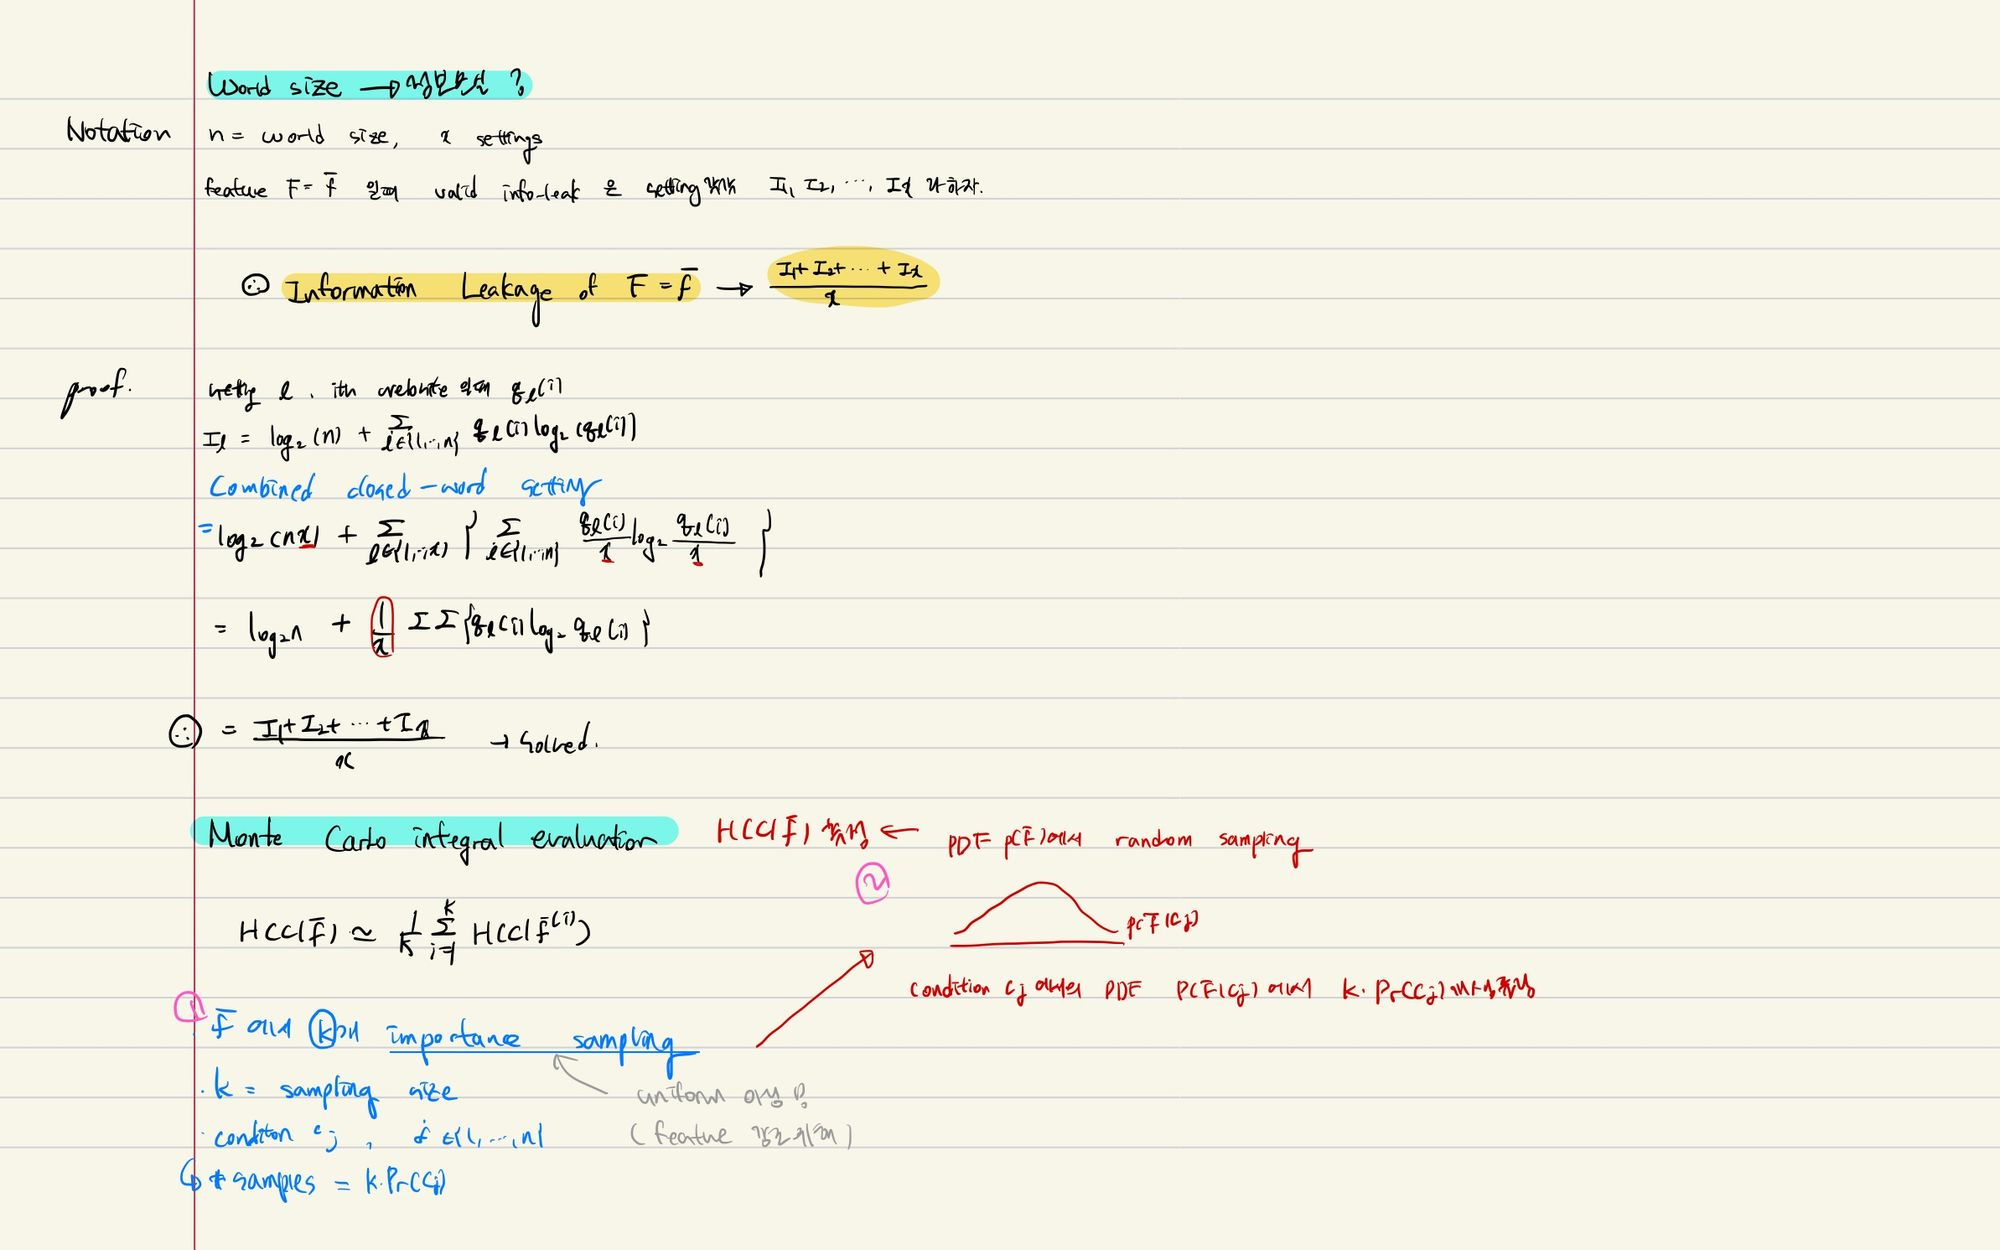 World size → 정보손실 ?
Notation
n = world size, x settings
feature F = f̄ 일때 valid info-leak 은 setting 각각 I₁, I₂, ⋯, Ix 라하자.
∴ Information Leakage of F = f̄ → (I₁ + I₂ + ⋯ + Ix) / x
proof.
setting l, ith website 일때 q_l(i)
I_l = log₂(n) + Σ_{i∈{1,⋯,n}} q_l(i) log₂(q_l(i))
Combined closed-word setting
= log₂(nx) + Σ_{l∈{1,⋯,x}} { Σ_{i∈{1,⋯,n}} q_l(i)/x log₂ q_l(i)/x }
= log₂n + 1/x ΣΣ{q_l(i) log₂ q_l(i)}
∴ = (I₁ + I₂ + ⋯ + Ix) / x → Solved.
Monte Carlo integral evaluation
H(C|f̄) 측정 ← PDF p(f̄)에서 random sampling
②
p(f̄|Cj)
H(C|f̄) ≃ 1/K Σ_{i=1}^{K} H(C|f̄^(i))
condition Cj 에서의 PDF P(f̄|Cj) 에서 k·Pr(Cj) 개 추출
①
f̄ 에서 k개 importance sampling
· k = sampling size
uniform
· conditon cj , j ∈{1,⋯,n}
(feature 강조 위해)
↳ # samples = k·Pr(Cj)